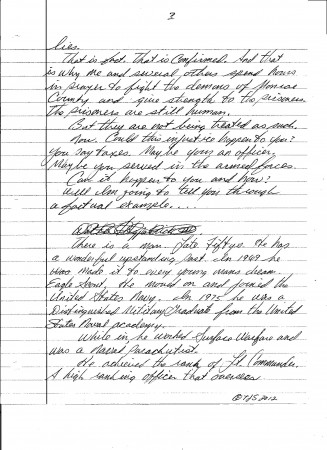 3
lies.
That is fact. That is confirmed. And that
is why me and several others spend hours
in prayer to fight the demons of Monroe
County and give strength to the prisoners.
The prisoners are still human.
But they are not being treated as such.
Now. Could this injustice happen to you?
You pay taxes. Maybe your an officer.
Maybe you served in the armed forces.
Can it happen to you and how?
Well Im going to tell you through
a factual example....
There is a man. Late Fiftys. He has
a wonderful upstanding past. In 1969 he
made it to every young mans dream.
Eagle Scout. He moved on and joined the
United States Navy. In 1975 he was a
Distinguished Military Graduate from the United
States Naval academy.
While in he worked Surface Warfare and
was a Naval Parachutist.
He achieved the rank of Lt. Commander.
A high ranking officer that oversees
2012